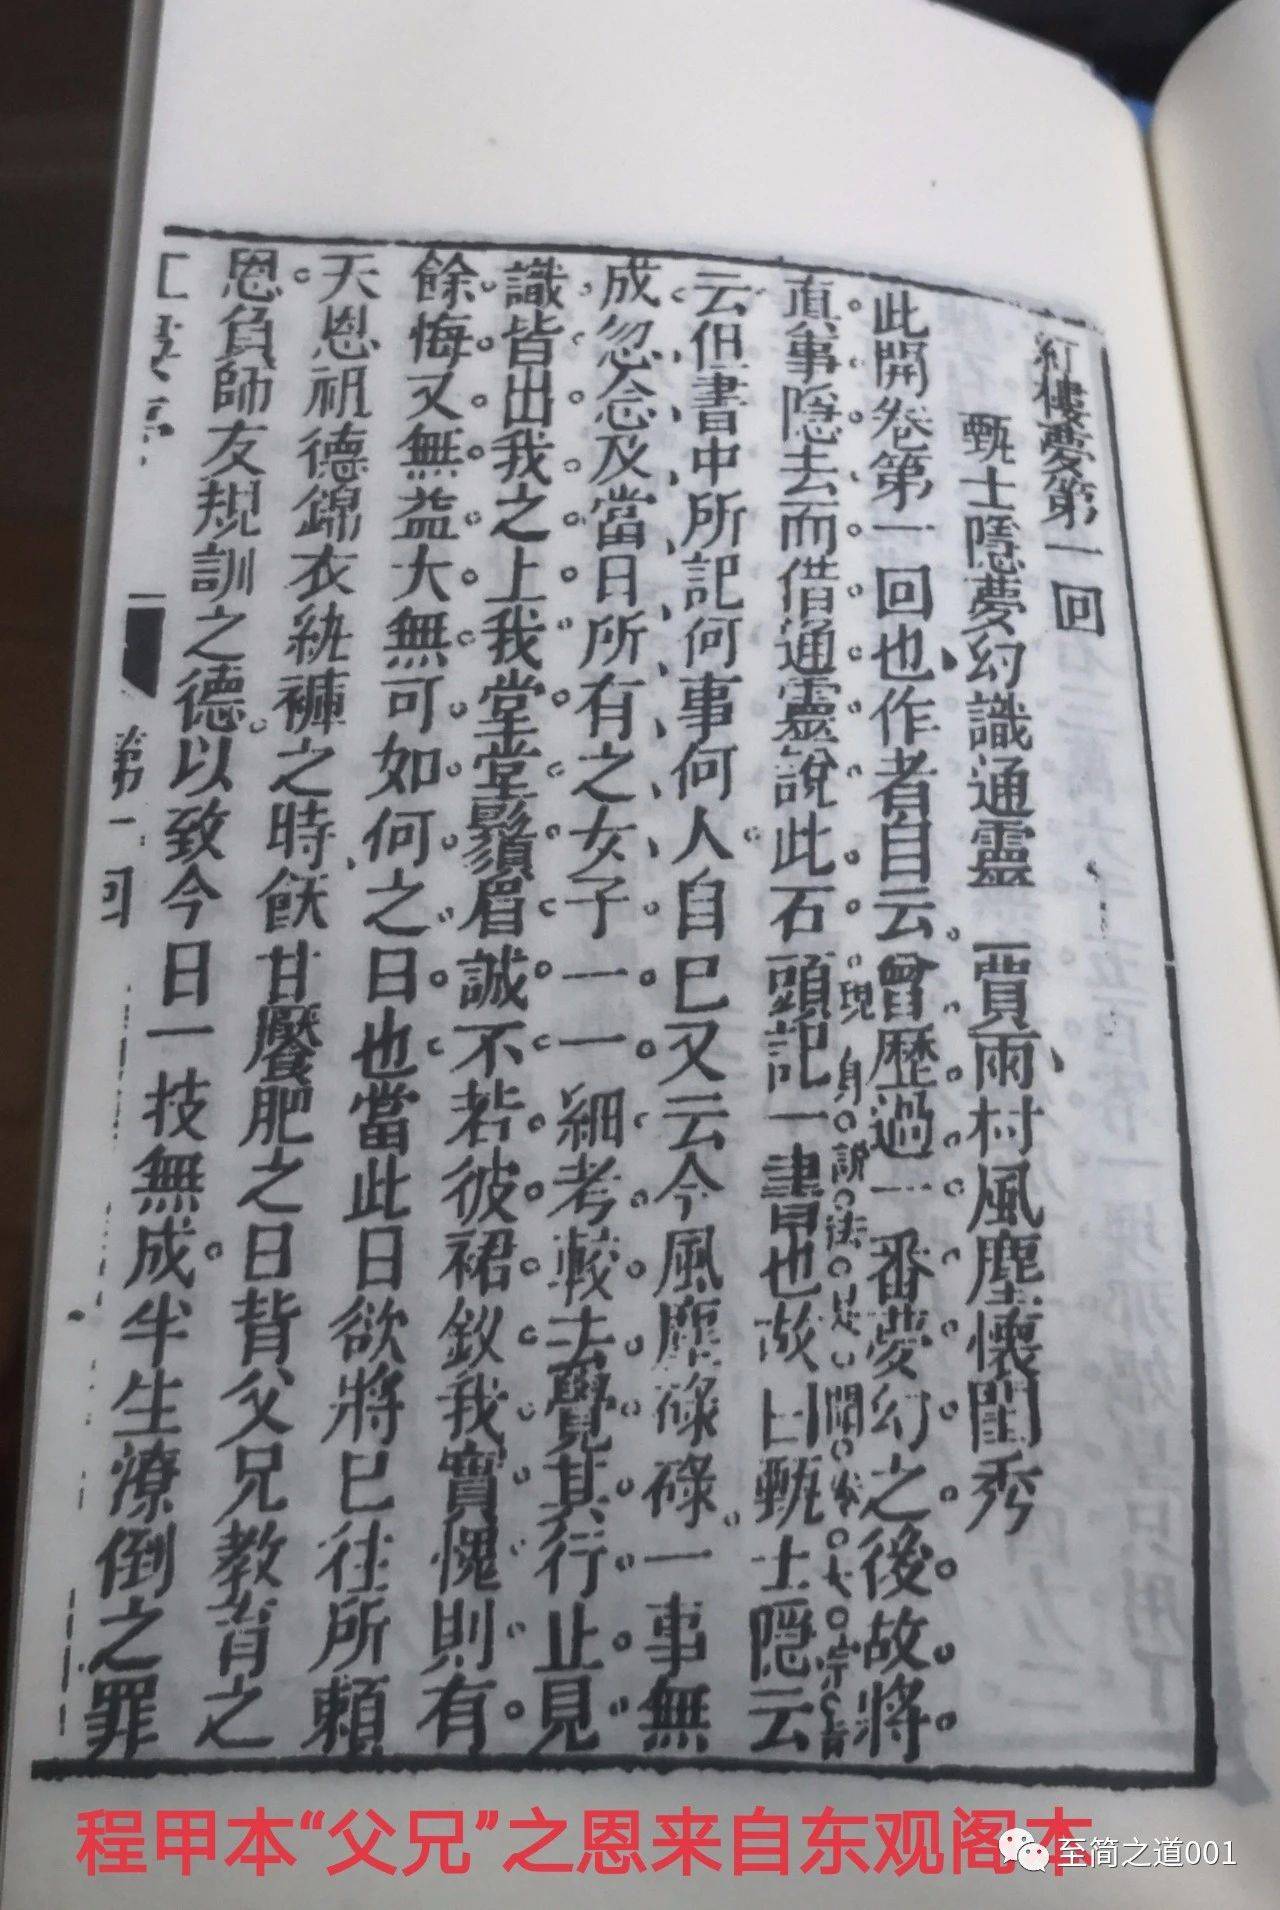 紅樓夢第一回
甄士隱夢幻識通靈 賈雨村風塵懷閨秀
此開卷第一回也作者自云曾歷過一番夢幻之後故將
現身說法是
真事隱去而借通靈說此石頭記一書也故曰甄士隱云
云但書中所記何事何人自已又云今風塵碌碌一事無
成忽念及當日所有之女子一一細考較去覺其行止見
識皆出我之上我堂堂鬚眉誠不若彼裙釵我實愧則有
餘悔又無益大無可如何之日也當此日欲將已往所賴
天恩祖德錦衣紈褲之時飫甘饜肥之日背父兄教育之
恩負師友規訓之德以致今日一技無成半生潦倒之罪
第一回
程甲本“父兄”之恩来自东观阁本
至简之道001